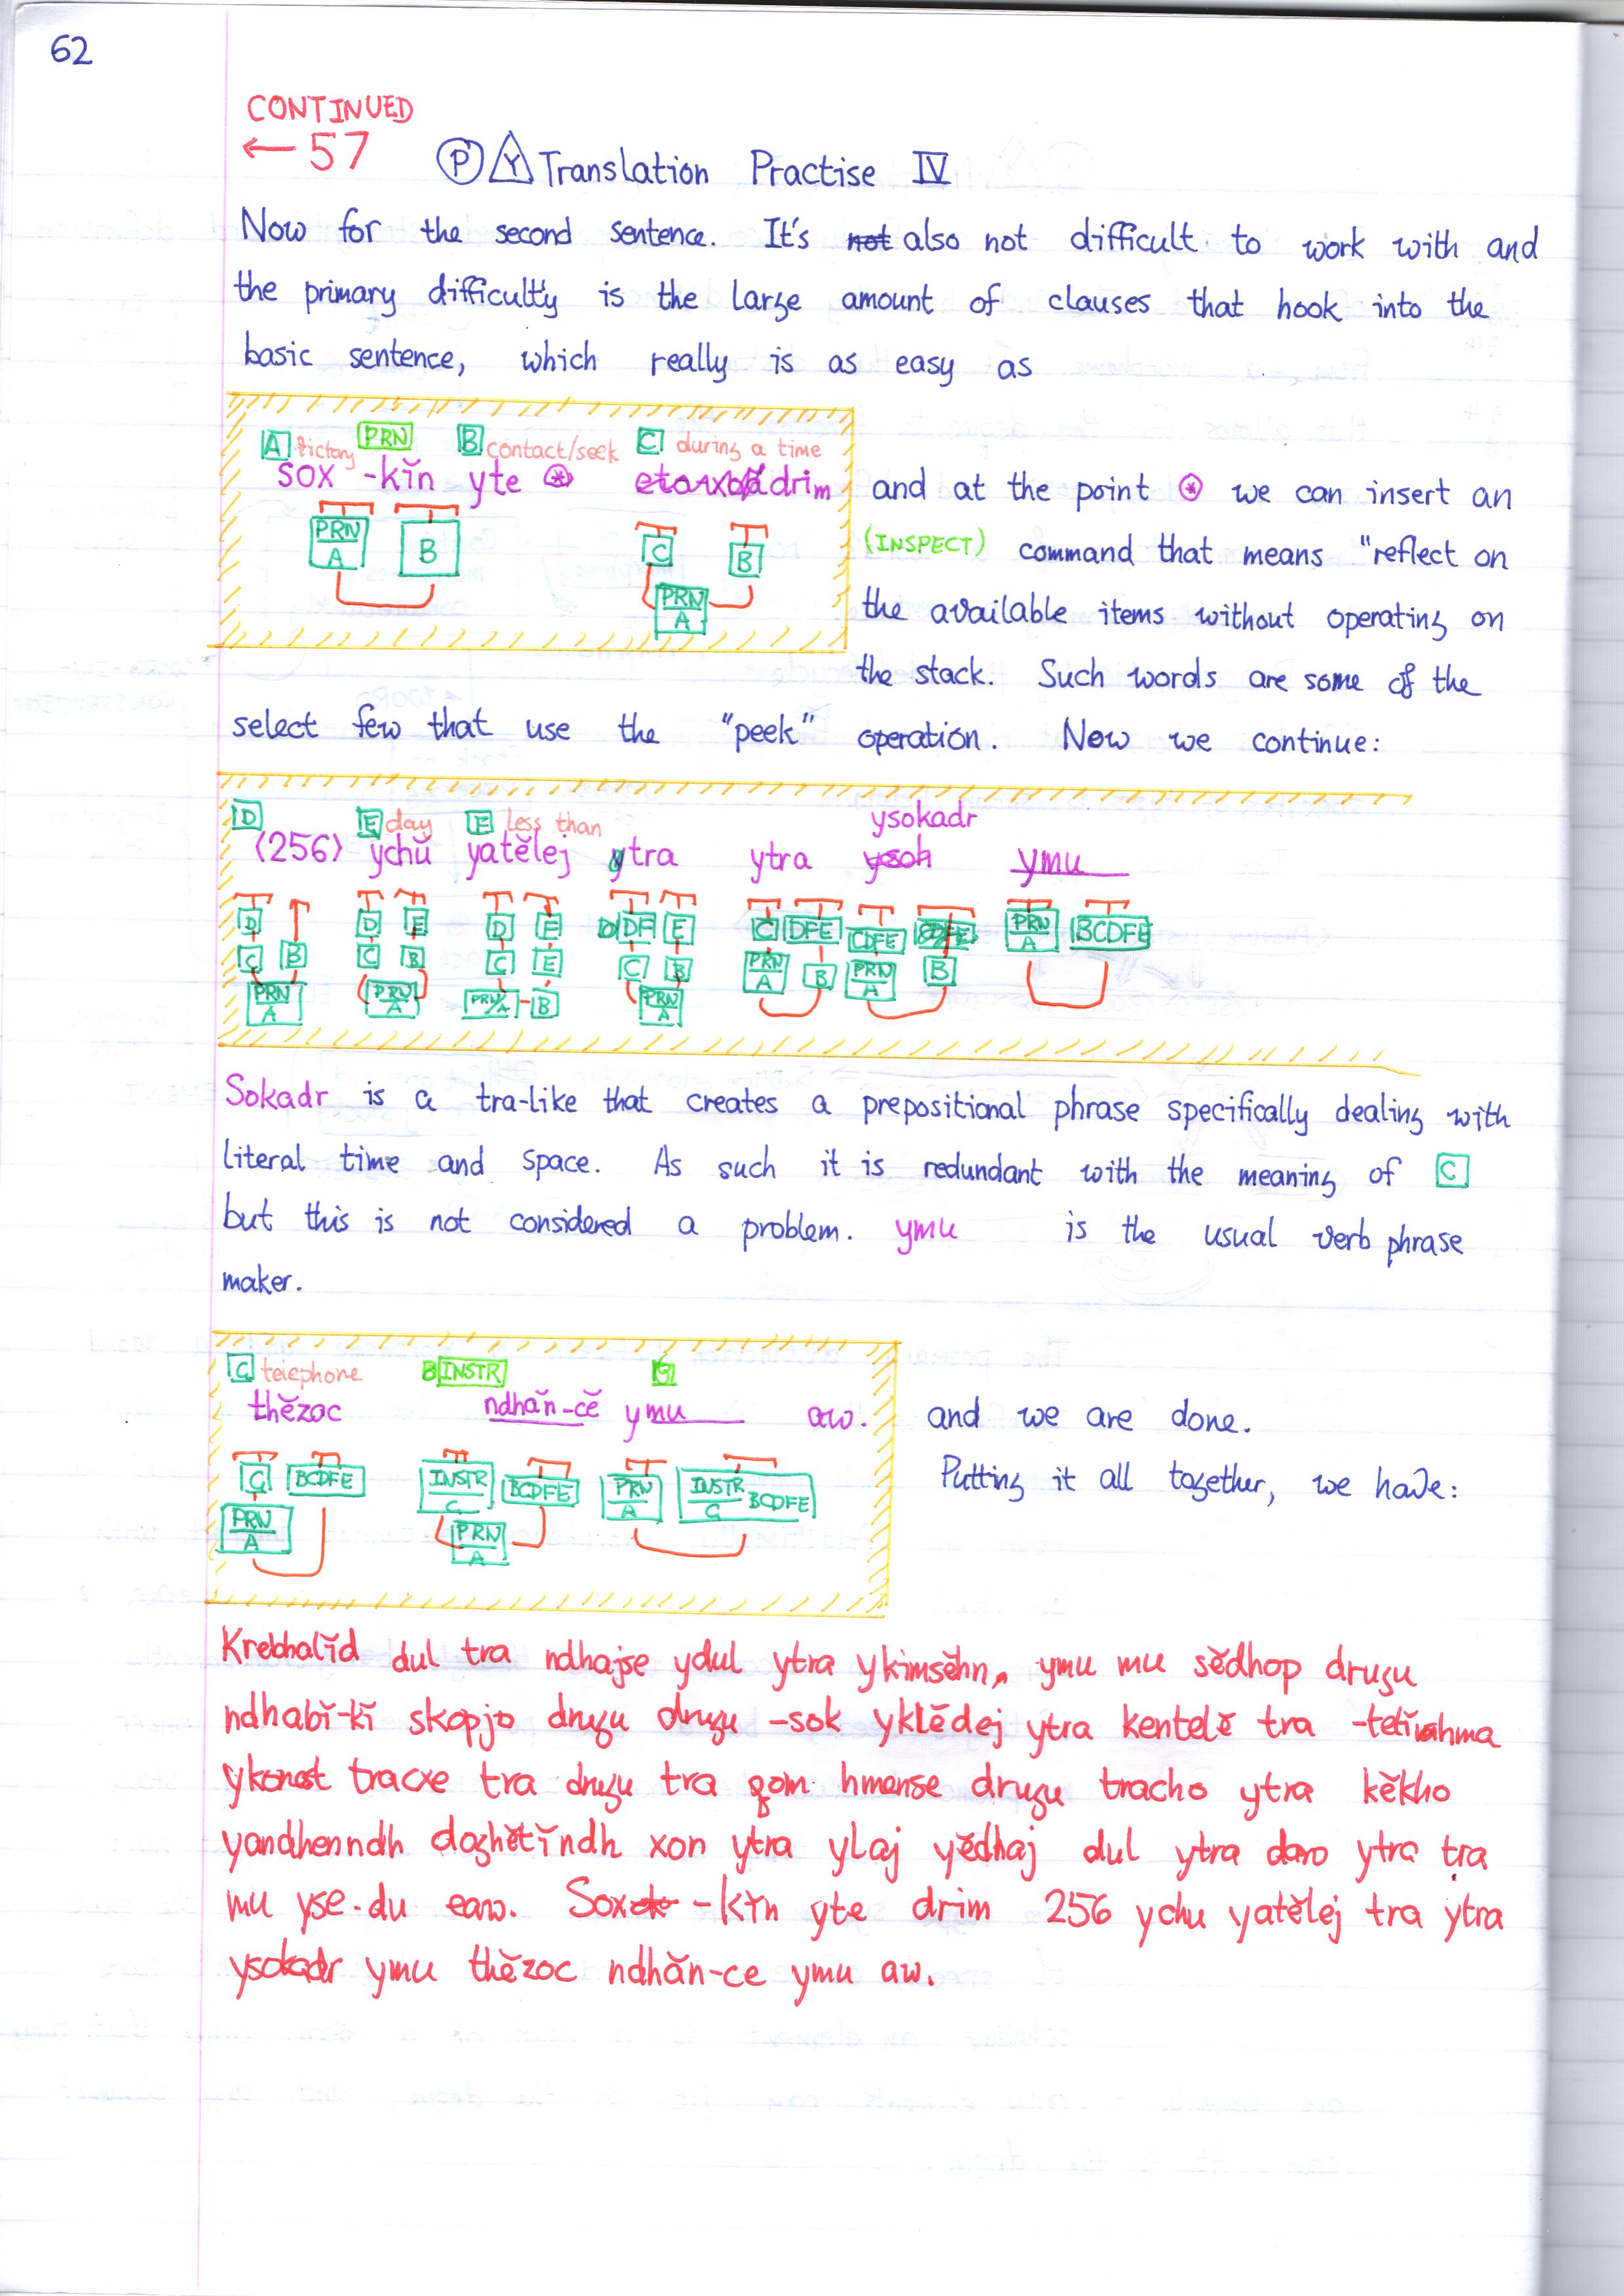 62
CONTINUED
← 57
P Y Translation Practise IV
Now for the second sentence. It's not also not difficult to work with and
the primary difficulty is the large amount of clauses that hook into the
basic sentence, which really is as easy as
A fictory PRN B contact/seek C during a time
sox -kĭn yte ⊛ drim
PRN A B C B
PRN A
and at the point ⊛ we can insert an
(INSPECT) command that means "reflect on
the available items without operating on
the stack. Such words are some of the
select few that use the "peek" operation. Now we continue:
ysokadr
D E day F less than
⟨256⟩ ychŭ yatĕlej ytra ytra ysoh ymu
D D E D F DFE E C DFE CDFE PRN A BCDFE
C B C B C E C B PRN A B PRN A B
PRN A PRN A PRN A B PRN A
Sokadr is a tra-like that creates a prepositional phrase specifically dealing with
literal time and space. As such it is redundant with the meaning of C
but this is not considered a problem. ymu is the usual verb phrase
maker.
G telephone INSTR
thĕzoc ndhăn-cĕ ymu aw.
G BCDFE INSTR G BCDFE PRN A INSTR G BCDFE
PRN A PRN A
and we are done.
Putting it all together, we have:
Krebhalĭd dul tra ndhajse ydul ytra ykimsĕhn, ymu mu sĕdhop druzu
ndhabĭ-kĭ skopjo druzu druzu -sok yklĕdej ytra kentelĕ tra
tracxe tra druzu tra qom hmense druzu tracho ytra kĕkho
yandhenndh dozhĕtĭndh xon ytra ylaj yĕdhaj dul ytra daro ytra tra
mu yse-du eaw. Sox -kĭn yte drim 256 ychu yatĕlej tra ytra
ysokadr ymu thĕzoc ndhăn-ce ymu aw.